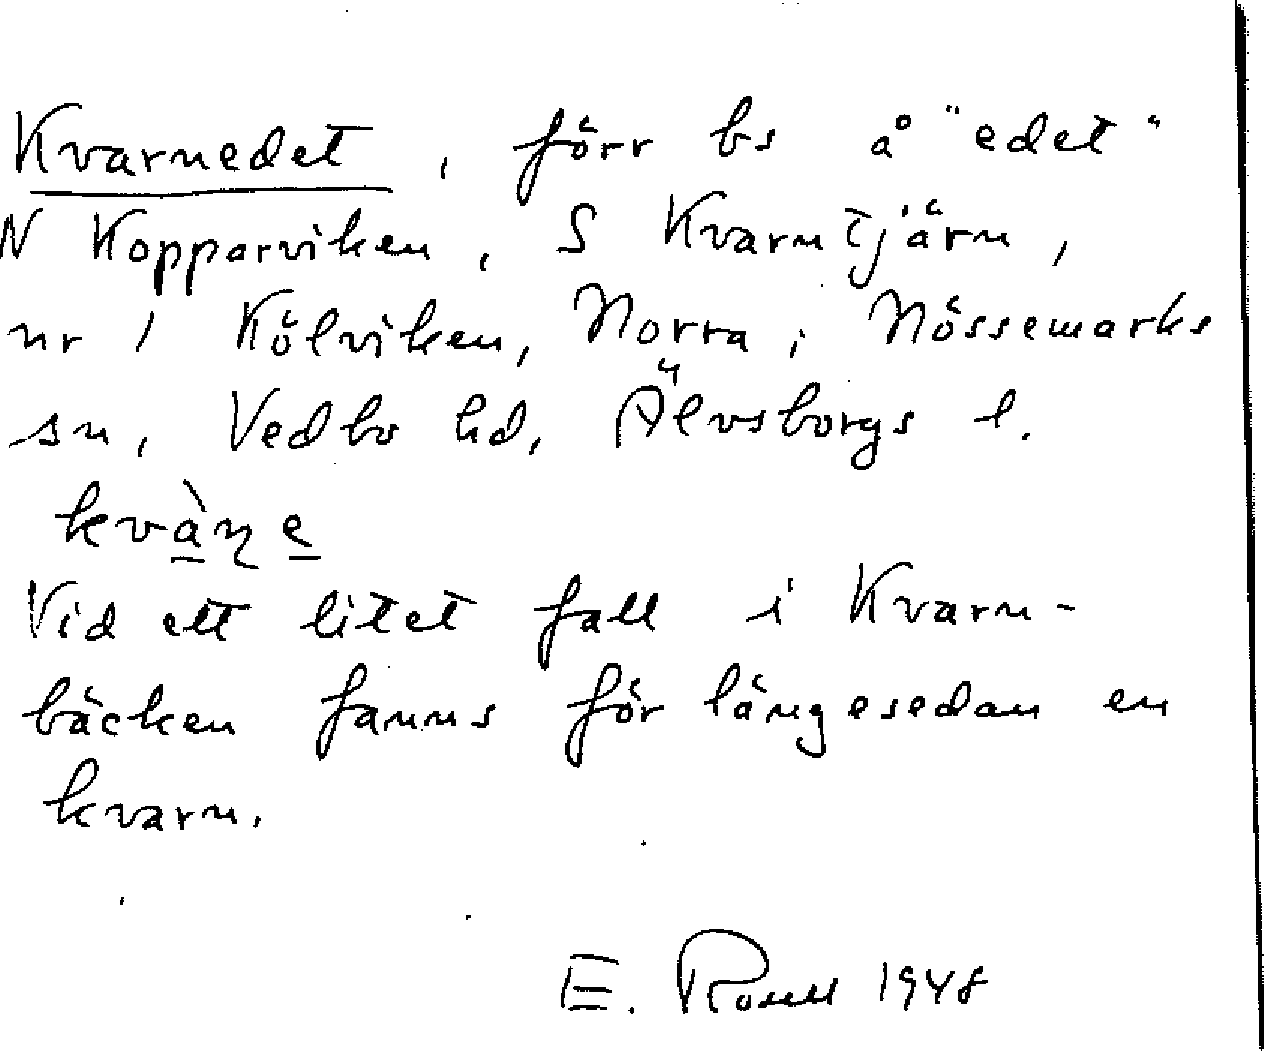 Kvarnedet, förr bs å "edet"
N Kopparviken, S Kvarntjärn,
nr 1 Kölviken, Norra, Nössemarks
sn, Vedbo hd, Älvsborgs l.
kvàɳe
Vid ett litet fall i Kvarn-
bäcken fanns för längesedan en
kvarn.
E. Rosell 1948